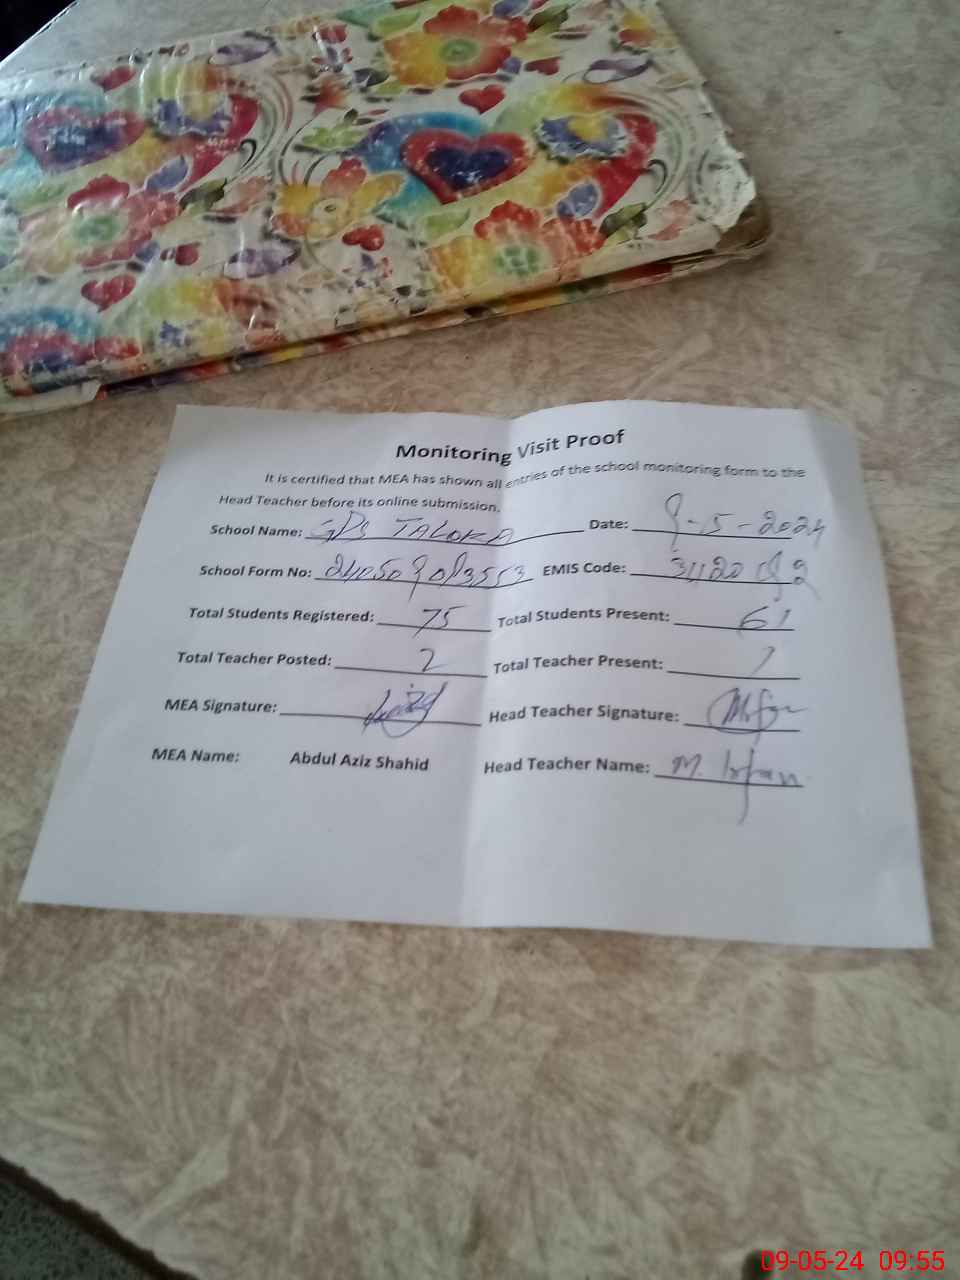 Monitoring Visit Proof
It is certified that MEA has shown all entries of the school monitoring form to the
Head Teacher before its online submission.
School Name: GPS TALOKA Date: 9-5-2024
School Form No: EMIS Code:
Total Students Registered: 75 Total Students Present: 61
Total Teacher Posted: 2 Total Teacher Present:
MEA Signature: Head Teacher Signature:
MEA Name: Abdul Aziz Shahid Head Teacher Name: M. Irfan
09-05-24 09:55